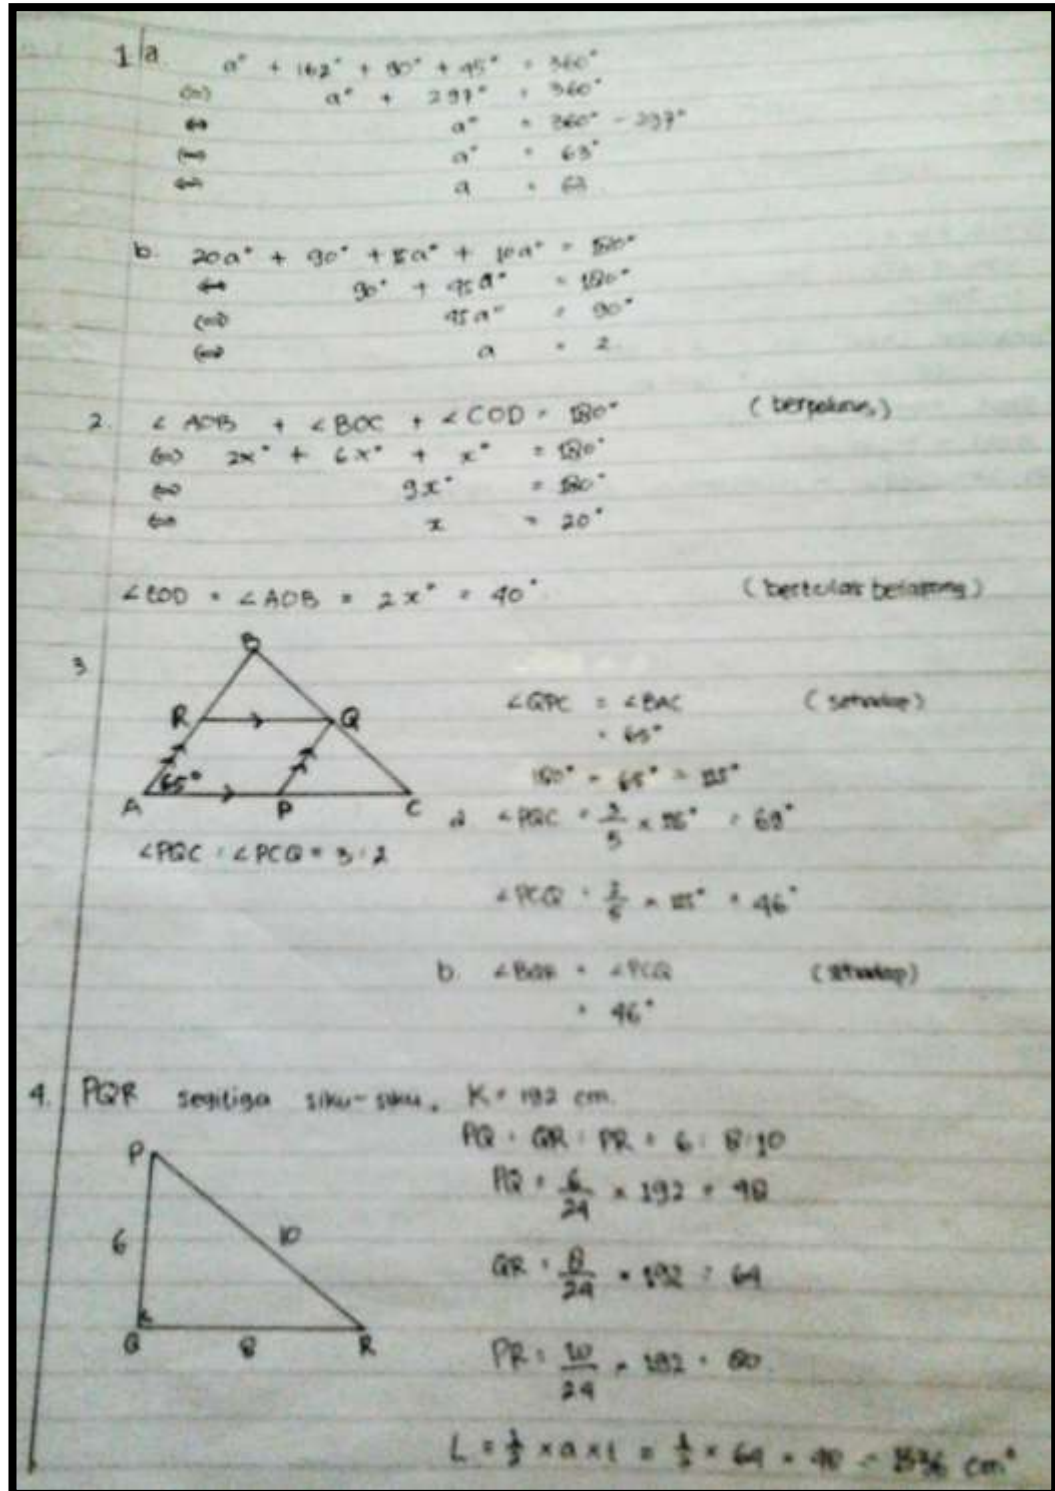 1 a. a° + 162° + 90° + 45° = 360°
⇔ a° + 297° = 360°
⇔ a° = 360° - 297°
⇔ a° = 63°
⇔ a = 63
b. 20a° + 90° + 15a° + 10a° = 180°
⇔ 90° + 45a° = 180°
⇔ 45a° = 90°
⇔ a = 2
2. ∠AOB + ∠BOC + ∠COD = 180° (berpelurus)
⇔ 2x° + 6x° + x° = 180°
⇔ 9x° = 180°
⇔ x = 20°
∠EOD = ∠AOB = 2x° = 40° (bertolak belakang)
3.
B
R Q
65°
A P C
∠PQC : ∠PCQ = 3 : 2
∠QPC = ∠BAC (sehadap)
= 65°
180° - 65° = 115°
a. ∠PQC = 3/5 × 115° = 69°
∠PCQ = 2/5 × 115° = 46°
b. ∠BQR = ∠PCQ (sehadap)
= 46°
4. PQR segitiga siku-siku. K = 192 cm.
PQ : QR : PR = 6 : 8 : 10
P
6 10
Q 8 R
PQ = 6/24 × 192 = 48
QR = 8/24 × 192 = 64
PR = 10/24 × 192 = 80
L = 1/2 × a × t = 1/2 × 64 × 48 = 1536 cm²